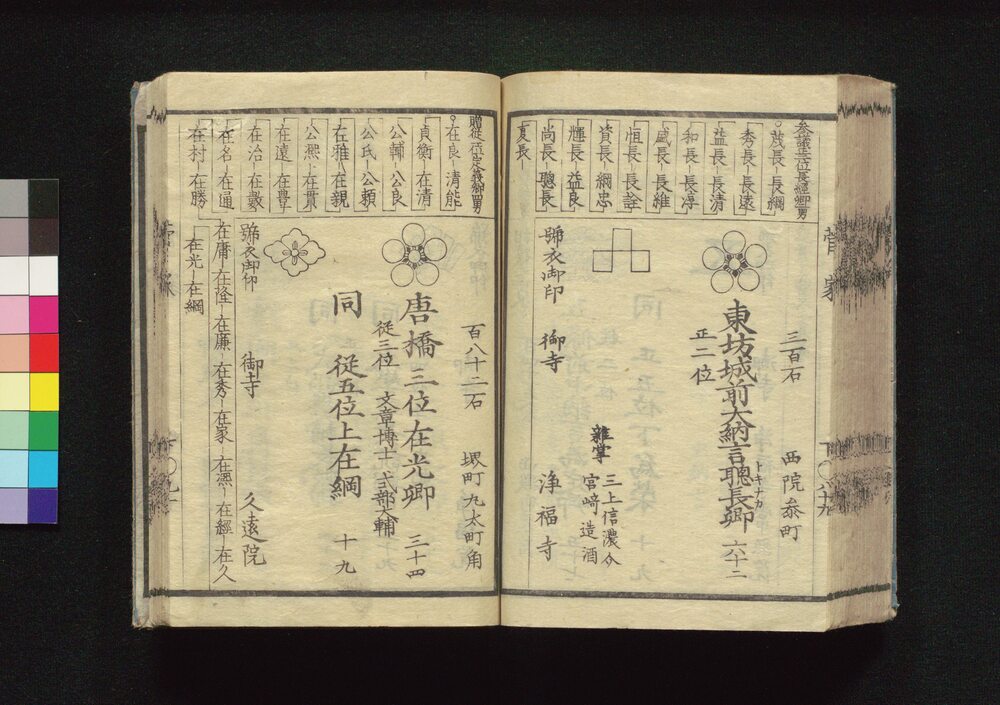 菅家
参議正三位長經卿男
茂長 長綱
秀長 長遠
益長 長清
和長 長淳
盛長 長維
恒長 長詮
資長 綱忠
輝長 益良
尚長 聰長
夏長
三百石
西院叅町
東坊城前大納言聰長卿 六十二
トキナカ
正二位
雜掌
三上信濃介
宮﨑造酒
號衣御印
御寺
浄福寺
贈従一位定義卿男
在良 清能
貞衡 在清
公輔 公良
公氏 公頼
在雅 在親
公熈 在貫
在遠 在豊
在治 在數
在名 在通
在村 在勝
百八十二石
堺町丸太町角
唐橋三位在光卿 三十四
従三位
文章博士
式部大輔
同 従五位上在綱 十九
號衣御印
御寺
久遠院
在庸 在隆 在廉 在秀 在家 在凞 在經 在久
在光 在綱
菅家